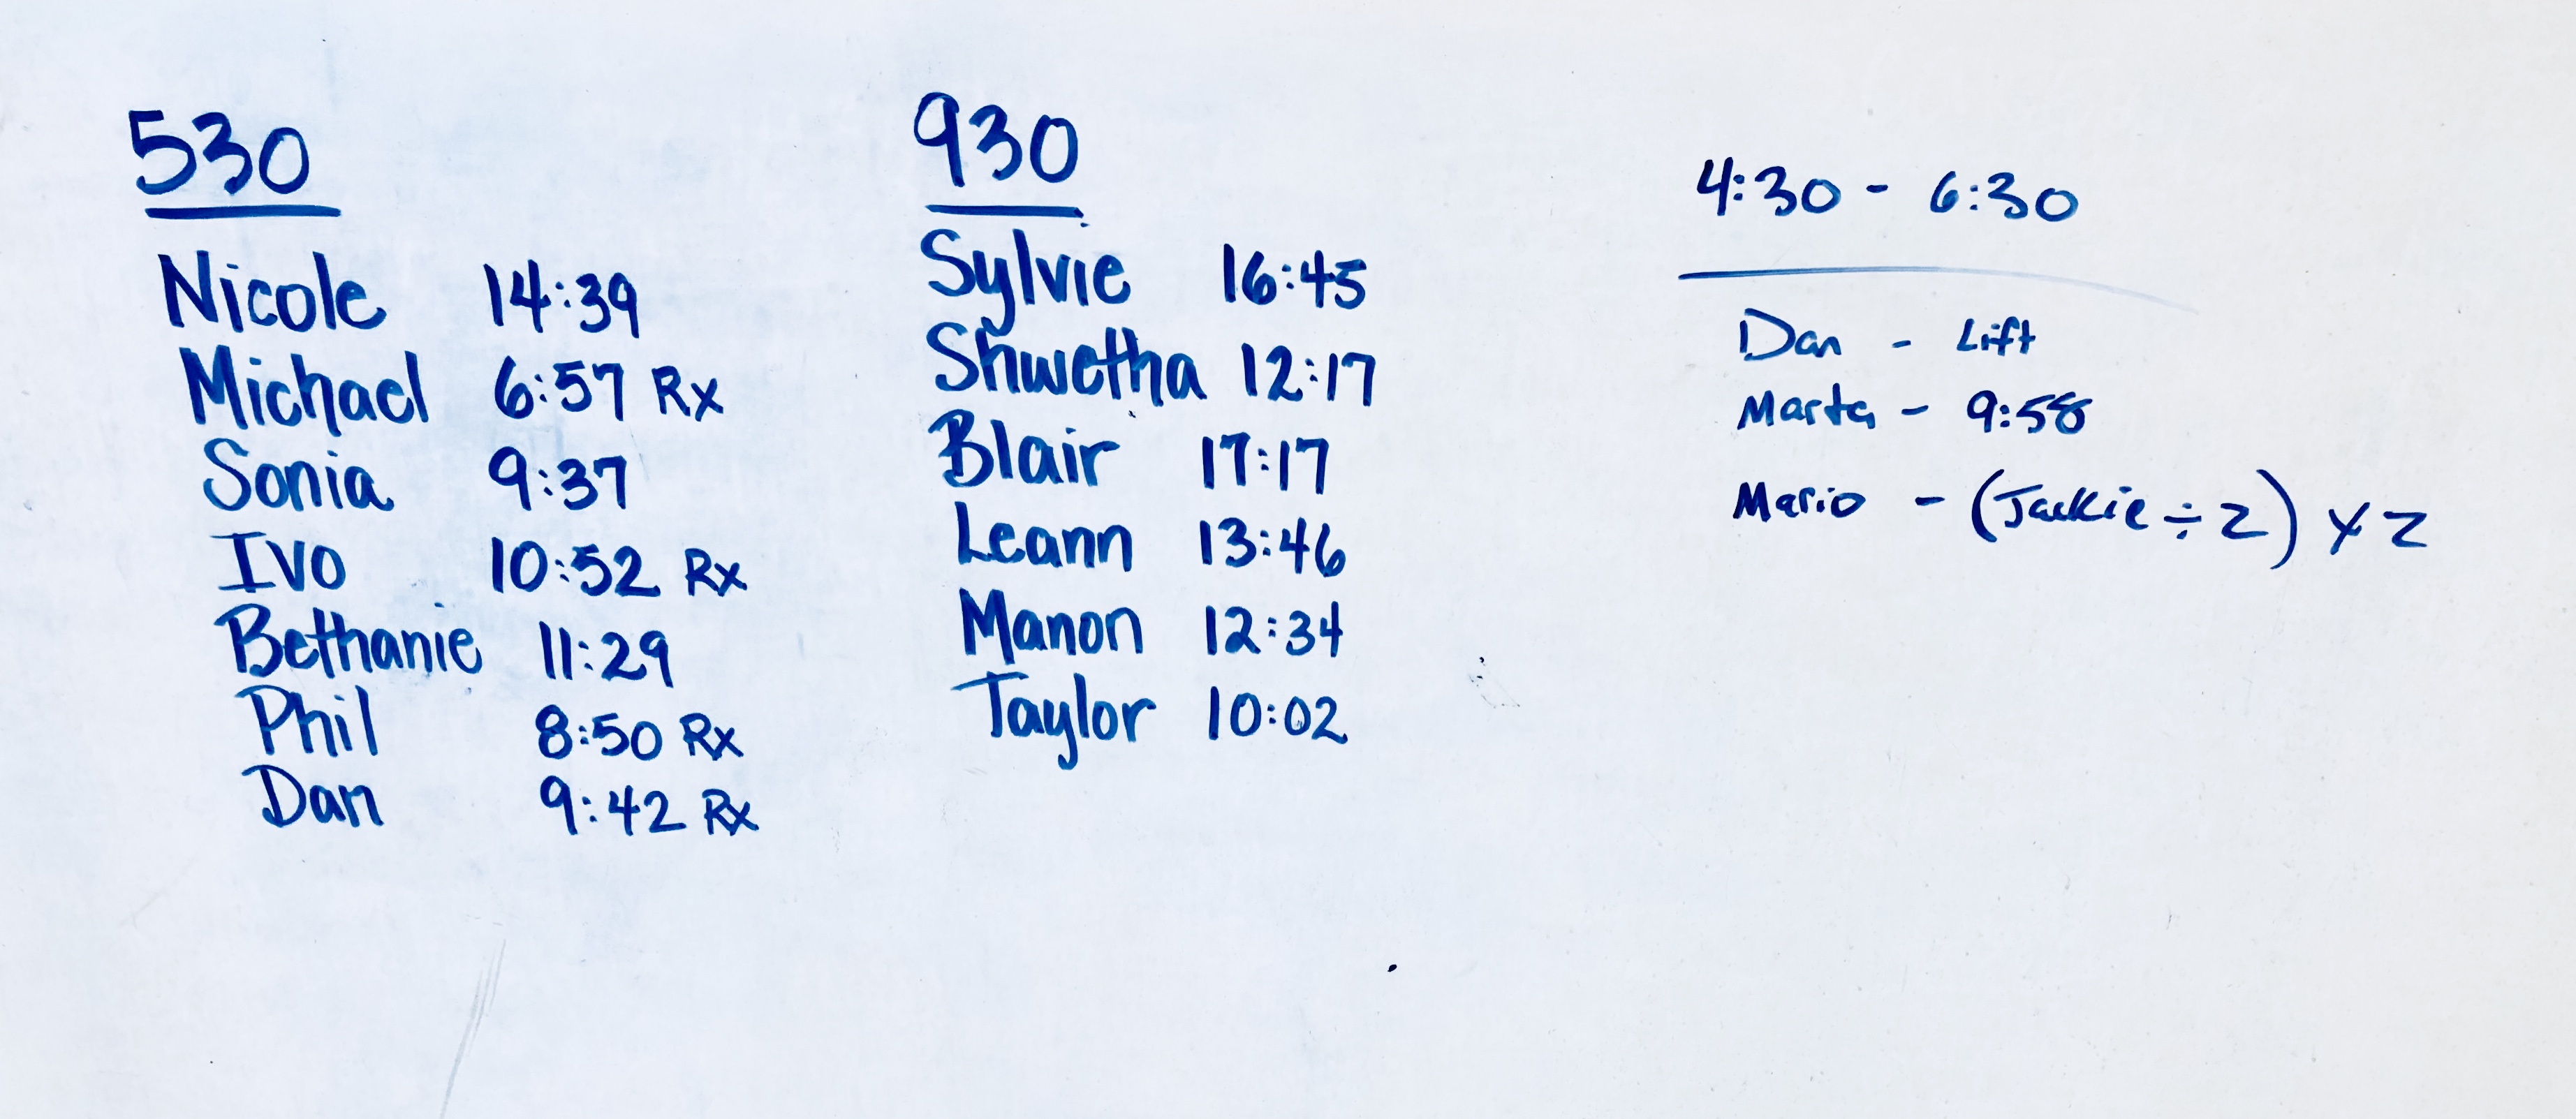 530
Nicole 14:39
Michael 6:57 Rx
Sonia 9:37
Ivo 10:52 Rx
Bethanie 11:29
Phil 8:50 Rx
Dan 9:42 Rx
930
Sylvie 16:45
Shwetha 12:17
Blair 17:17
Leann 13:46
Manon 12:34
Taylor 10:02
4:30 - 6:30
Dan - Lift
Marta - 9:58
Mario - (Jackie ÷ 2) x 2